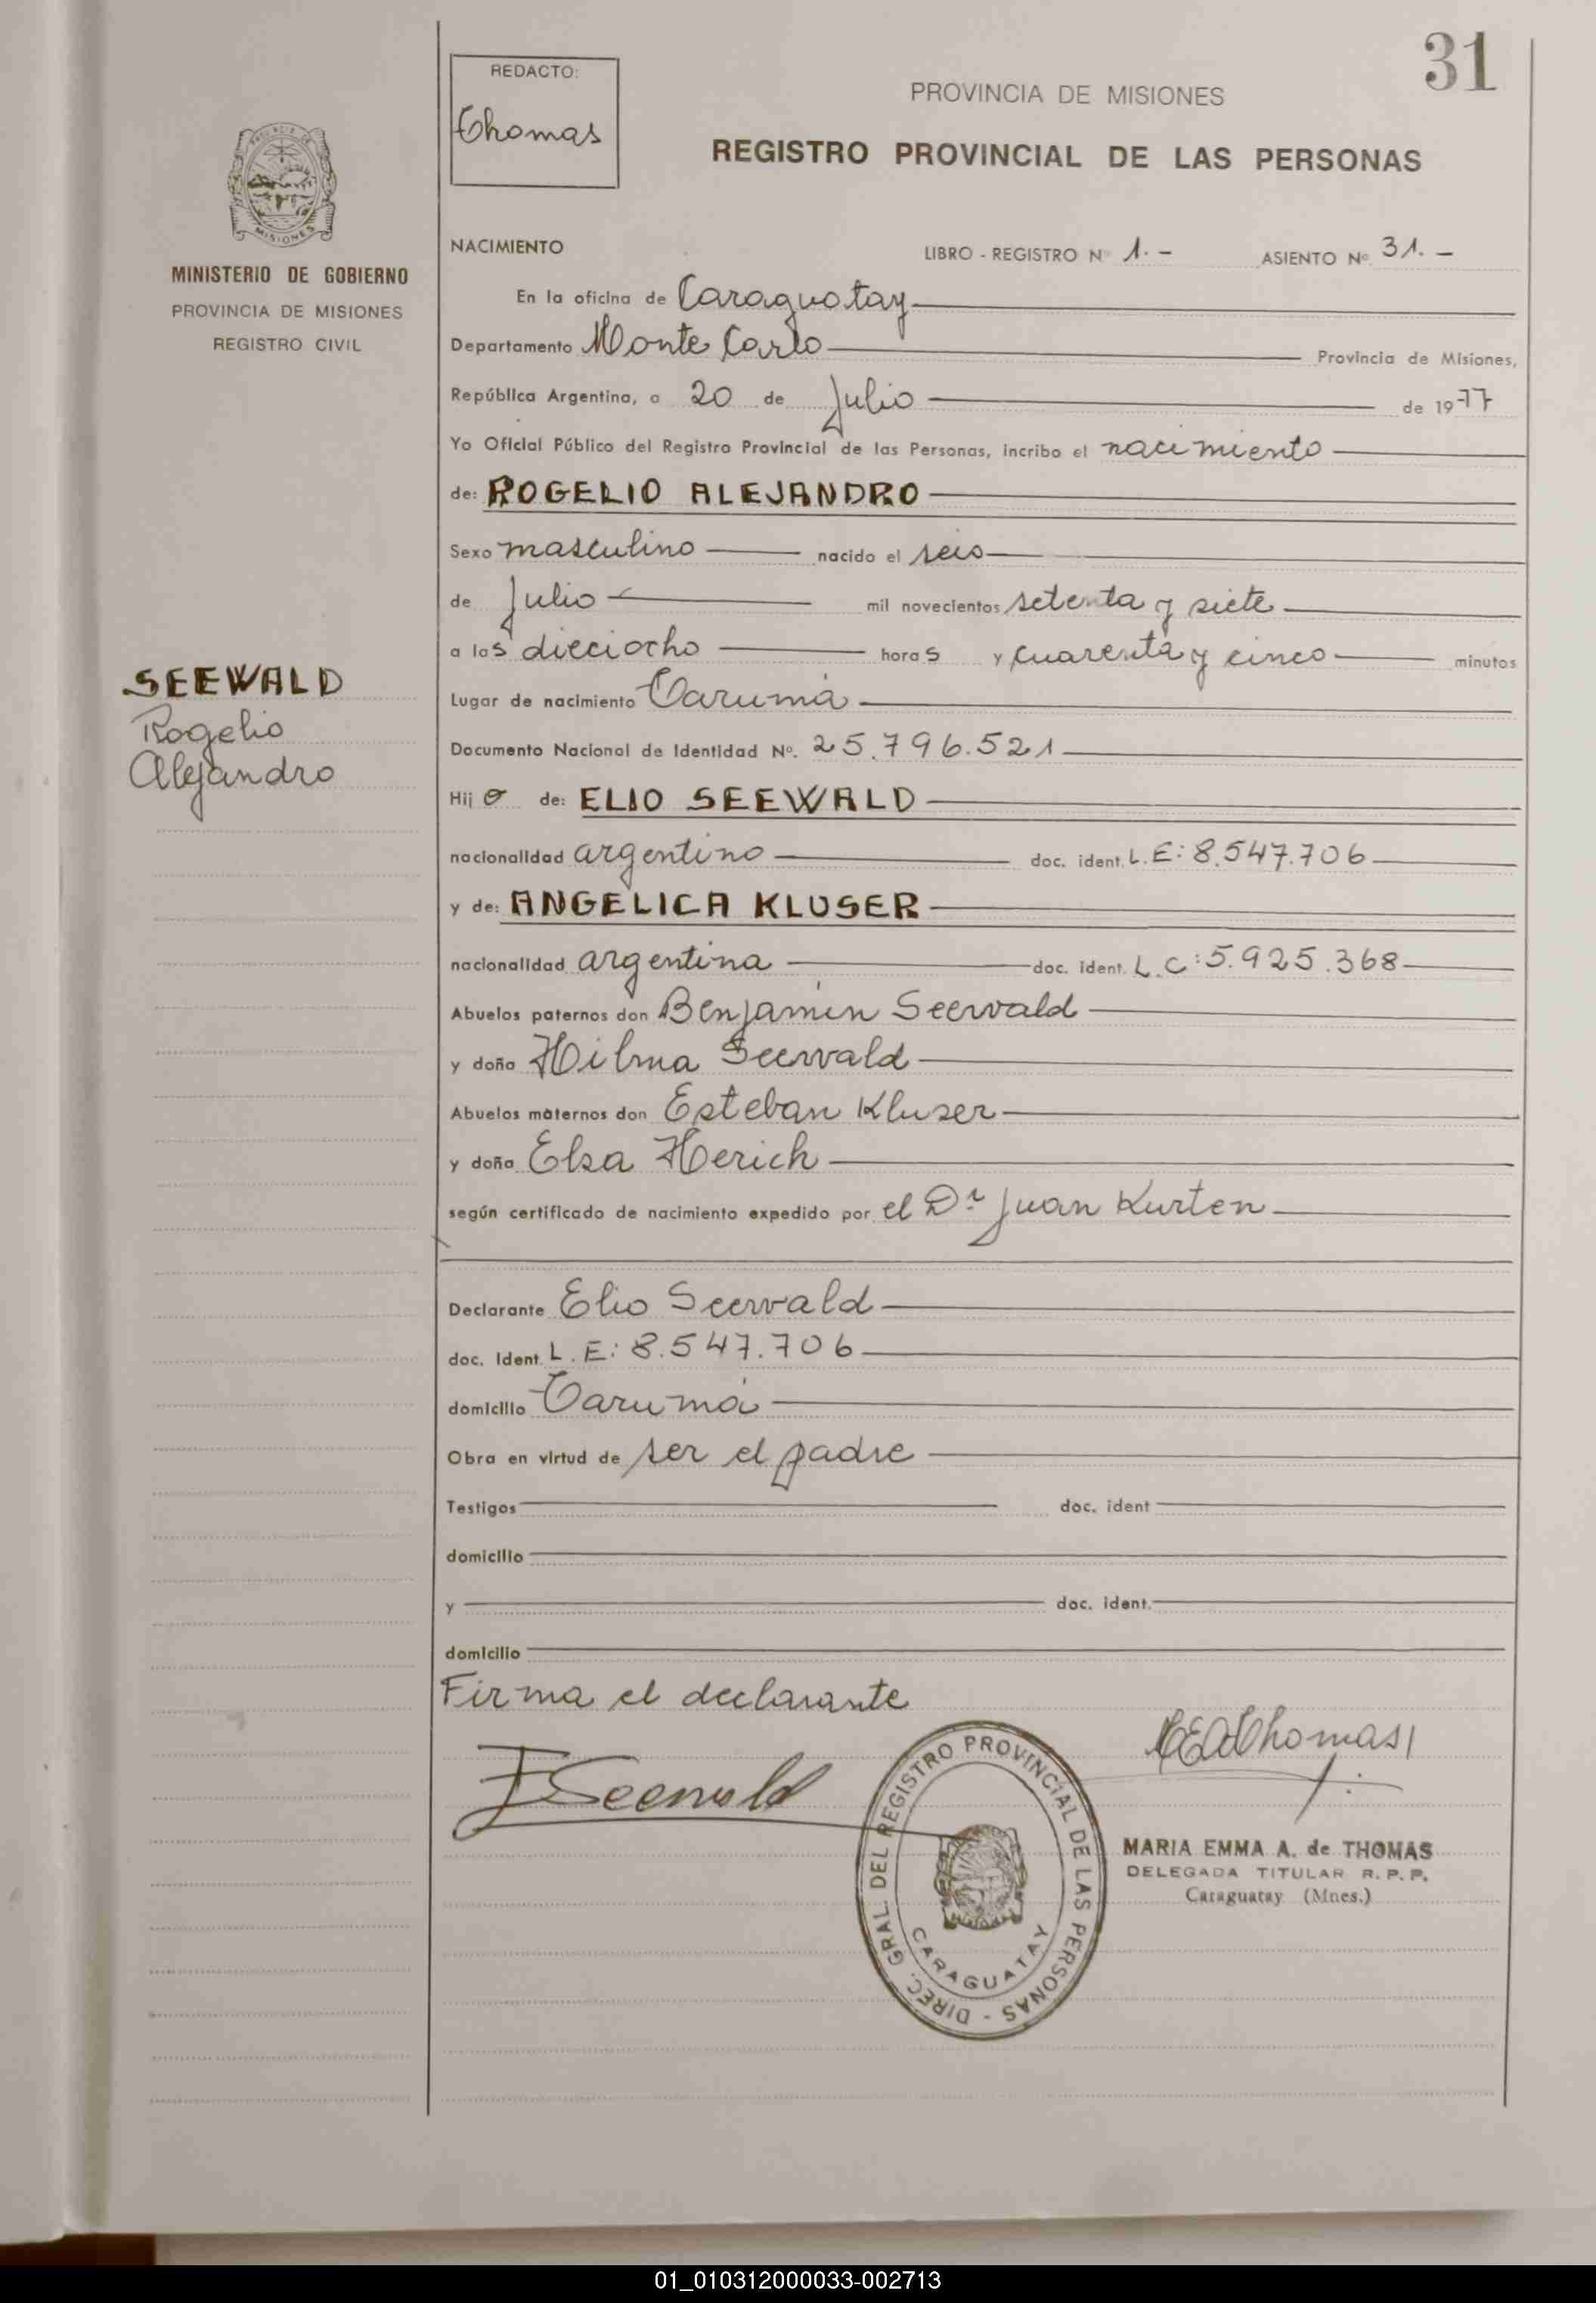 31
REDACTO:
Thomas
PROVINCIA DE MISIONES
REGISTRO PROVINCIAL DE LAS PERSONAS
MISIONES
MINISTERIO DE GOBIERNO
PROVINCIA DE MISIONES
REGISTRO CIVIL
SEEWALD
Rogelio
Alejandro
NACIMIENTO LIBRO - REGISTRO Nº 1.- ASIENTO Nº 31.-
En la oficina de Caraguatay
Departamento Monte Carlo Provincia de Misiones,
República Argentina, a 20 de Julio de 1977
Yo Oficial Público del Registro Provincial de las Personas, incribo el nacimiento
de: ROGELIO ALEJANDRO
Sexo masculino nacido el seis
de Julio mil novecientos setenta y siete
a las dieciocho horas y cuarenta y cinco minutos
Lugar de nacimiento Tarumá
Documento Nacional de Identidad Nº. 25.796.521
Hijo de: ELIO SEEWALD
nacionalidad argentino doc. ident. L.E: 8.547.706
y de: ANGELICA KLUSER
nacionalidad argentina doc. ident. L.C: 5.925.368
Abuelos paternos don Benjamín Seewald
y doña Hilma Seewald
Abuelos maternos don Esteban Kluser
y doña Elsa Herich
según certificado de nacimiento expedido por el Dr Juan Kurten
Declarante Elio Seewald
doc. Ident. L.E: 8.547.706
domicilio Tarumá
Obra en virtud de ser el padre
Testigos doc. ident
domicilio
y doc. ident.
domicilio
Firma el declarante
ESeewald
MEAThomas
DIREC. GRAL. DEL REGISTRO PROVINCIAL DE LAS PERSONAS -
CARAGUATAY
MARIA EMMA A. de THOMAS
DELEGADA TITULAR R. P. P.
Caraguatay (Mnes.)
01_010312000033-002713